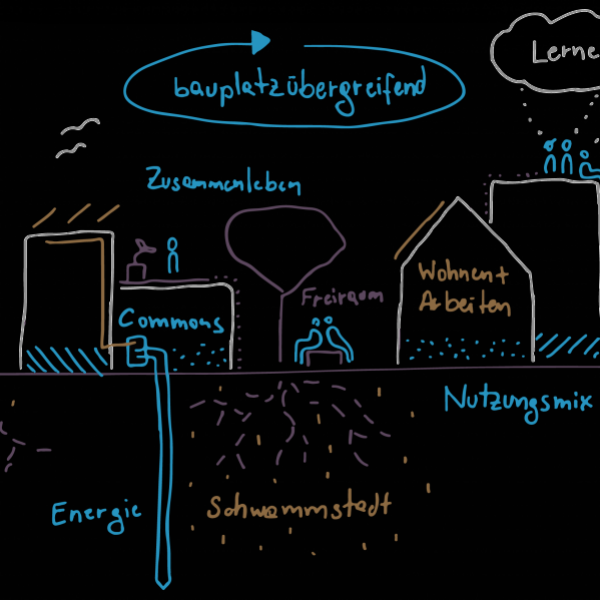 Lerne
bauplatzübergreifend
Zusammenleben
Wohnen+
Arbeiten
Freiraum
Commons
Nutzungsmix
Schwammstadt
Energie